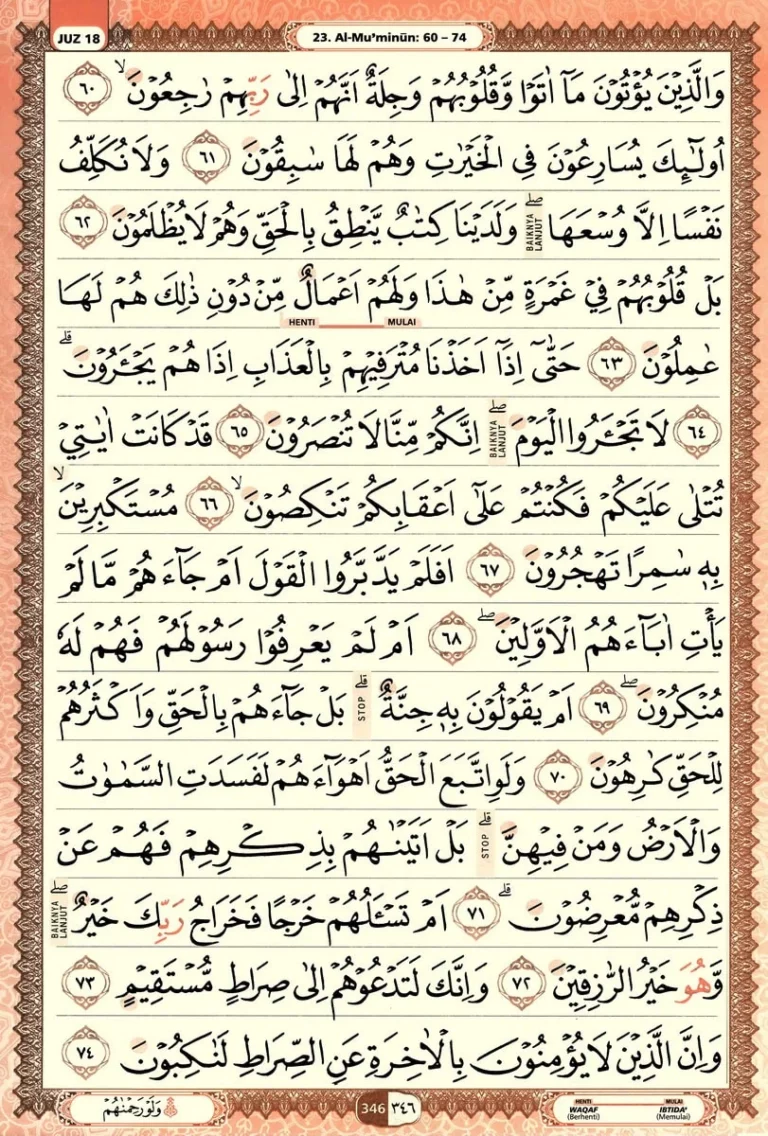 JUZ 18
23. Al-Mu’minūn: 60 – 74
وَالَّذِيْنَ يُؤْتُوْنَ مَآ اٰتَوْا وَّقُلُوْبُهُمْ وَجِلَةٌ اَنَّهُمْ اِلٰى رَبِّهِمْ رٰجِعُوْنَ ۙ ٦٠
اُولٰۤىِٕكَ يُسَارِعُوْنَ فِى الْخَيْرٰتِ وَهُمْ لَهَا سٰبِقُوْنَ ٦١ وَلَا نُكَلِّفُ
نَفْسًا اِلَّا وُسْعَهَا ۖ BAIKNYA LANJUT وَلَدَيْنَا كِتٰبٌ يَّنْطِقُ بِالْحَقِّ وَهُمْ لَا يُظْلَمُوْنَ ٦٢
بَلْ قُلُوْبُهُمْ فِيْ غَمْرَةٍ مِّنْ هٰذَا وَلَهُمْ اَعْمَالٌ مِّنْ دُوْنِ ذٰلِكَ هُمْ لَهَا
HENTI MULAI
عٰمِلُوْنَ ٦٣ حَتّٰىٓ اِذَآ اَخَذْنَا مُتْرَفِيْهِمْ بِالْعَذَابِ اِذَا هُمْ يَجْـَٔرُوْنَ ۗ
٦٤ لَا تَجْـَٔرُوا الْيَوْمَ ۖ BAIKNYA LANJUT اِنَّكُمْ مِّنَّا لَا تُنْصَرُوْنَ ٦٥ قَدْ كَانَتْ اٰيٰتِيْ
تُتْلٰى عَلَيْكُمْ فَكُنْتُمْ عَلٰٓى اَعْقَابِكُمْ تَنْكِصُوْنَ ۙ ٦٦ مُسْتَكْبِرِيْنَ ۙ
بِهٖ سٰمِرًا تَهْجُرُوْنَ ٦٧ اَفَلَمْ يَدَّبَّرُوا الْقَوْلَ اَمْ جَاۤءَهُمْ مَّا لَمْ
يَأْتِ اٰبَاۤءَهُمُ الْاَوَّلِيْنَ ۖ ٦٨ اَمْ لَمْ يَعْرِفُوْا رَسُوْلَهُمْ فَهُمْ لَهٗ
مُنْكِرُوْنَ ۖ ٦٩ اَمْ يَقُوْلُوْنَ بِهٖ جِنَّةٌ ۗ STOP بَلْ جَاۤءَهُمْ بِالْحَقِّ وَاَكْثَرُهُمْ
لِلْحَقِّ كٰرِهُوْنَ ٧٠ وَلَوِ اتَّبَعَ الْحَقُّ اَهْوَاۤءَهُمْ لَفَسَدَتِ السَّمٰوٰتُ
وَالْاَرْضُ وَمَنْ فِيْهِنَّ ۗ STOP بَلْ اَتَيْنٰهُمْ بِذِكْرِهِمْ فَهُمْ عَنْ
ذِكْرِهِمْ مُّعْرِضُوْنَ ۗ ٧١ اَمْ تَسْـَٔلُهُمْ خَرْجًا فَخَرَاجُ رَبِّكَ خَيْرٌ ۖ BAIKNYA LANJUT
وَّهُوَ خَيْرُ الرّٰزِقِيْنَ ٧٢ وَاِنَّكَ لَتَدْعُوْهُمْ اِلٰى صِرَاطٍ مُّسْتَقِيْمٍ ٧٣
وَاِنَّ الَّذِيْنَ لَا يُؤْمِنُوْنَ بِالْاٰخِرَةِ عَنِ الصِّرَاطِ لَنٰكِبُوْنَ ٧٤
وَلَوْ رَحِمْنٰهُمْ
346 ٣٤٦
HENTI MULAI
WAQAF IBTIDA'
(Berhenti) (Memulai)